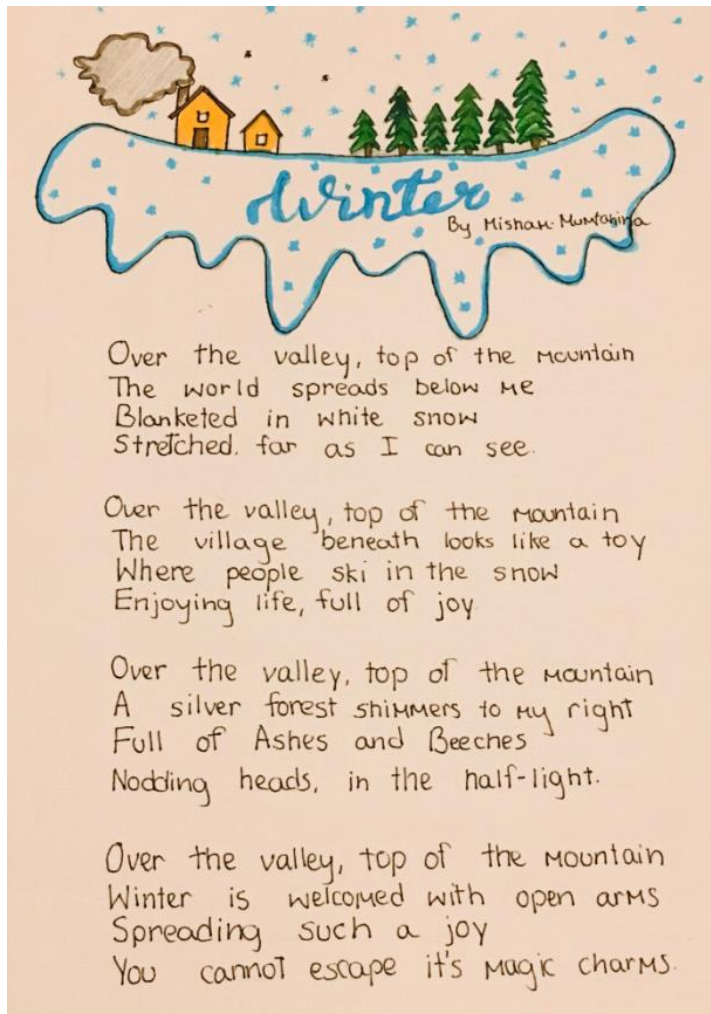 Winter
By Misham Mumtahina
Over the valley, top of the mountain
The world spreads below me
Blanketed in white snow
Stretched. far as I can see.
Over the valley, top of the mountain
The village beneath looks like a toy
Where people ski in the snow
Enjoying life, full of joy.
Over the valley, top of the mountain
A silver forest shimmers to my right
Full of Ashes and Beeches
Nodding heads, in the half-light.
Over the valley, top of the mountain
Winter is welcomed with open arms
Spreading such a joy
You cannot escape it's magic charms.